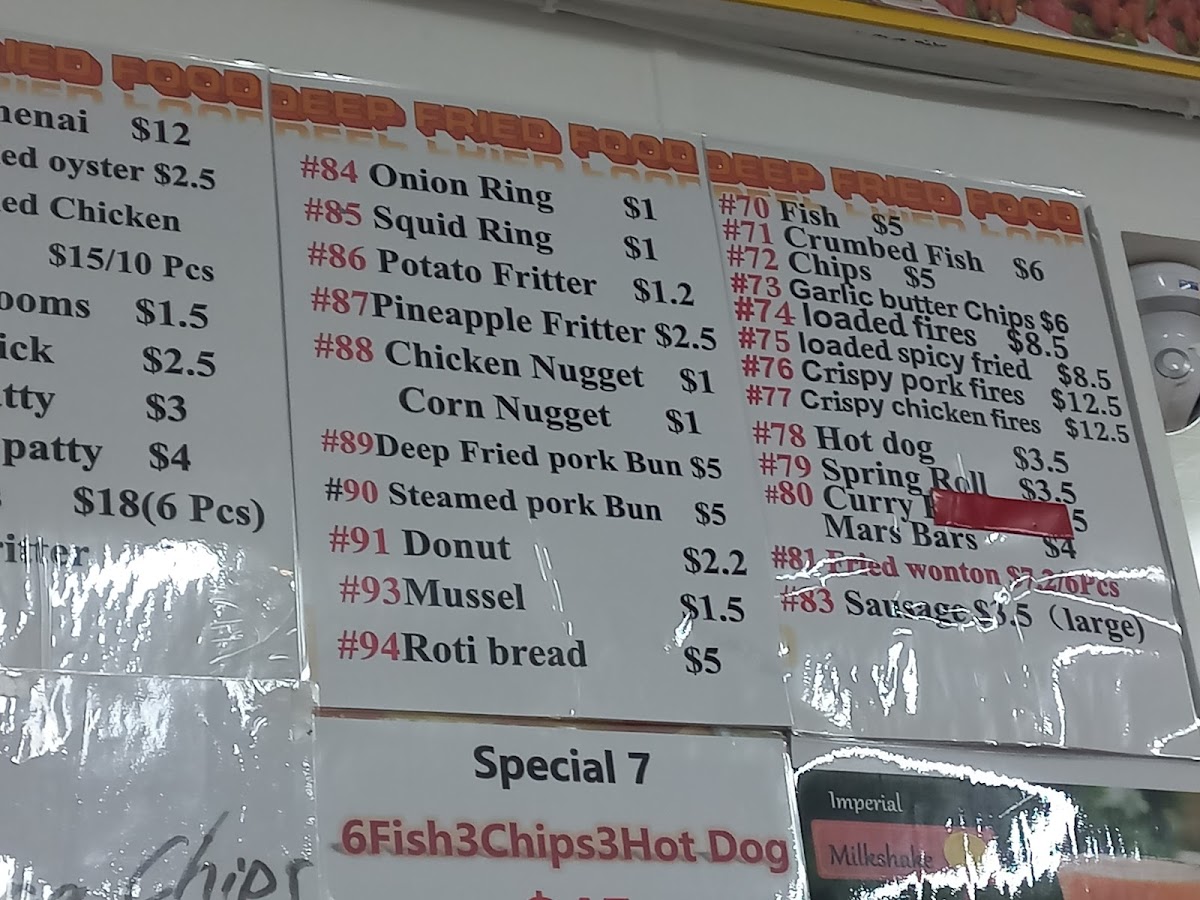 FOOD
$12
oyster $2.5
Chicken
$15/10 Pcs
$1.5
$2.5
$3
patty $4
$18(6 Pcs)
DEEP FRIED FOOD
#84 Onion Ring $1
#85 Squid Ring $1
#86 Potato Fritter $1.2
#87Pineapple Fritter $2.5
#88 Chicken Nugget $1
Corn Nugget $1
#89Deep Fried pork Bun $5
#90 Steamed pork Bun $5
#91 Donut $2.2
#93Mussel $1.5
#94Roti bread $5
DEEP FRIED FOOD
#70 Fish $5
#71 Crumbed Fish $6
#72 Chips $5
#73 Garlic butter Chips $6
#74 loaded fires $8.5
#75 loaded spicy fried $8.5
#76 Crispy pork fires $12.5
#77 Crispy chicken fires $12.5
#78 Hot dog $3.5
#79 Spring Roll $3.5
#80 Curry 5
Mars Bars $4
#81 Fried wonton $7.2/6Pcs
#83 Sausage $3.5 (large)
Special 7
6Fish3Chips3Hot Dog
Chips
Imperial
Milkshake